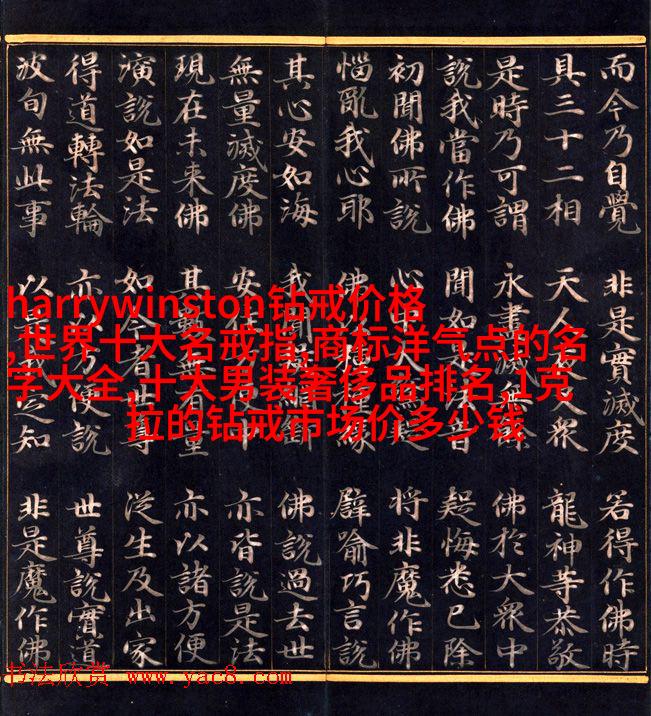 而今乃自覺 非是實滅度 若得作佛時
具三十二相 天人夜叉眾 龍神等恭敬
是時乃可謂 永盡滅無餘 佛於大眾中
說我當作佛 聞如是法音 疑悔悉已除
初聞佛所說 心 將非魔作佛
惱亂我心耶 佛 緣 譬喻巧言說
其心安如海 我聞 斷 佛說過去世
無量滅度佛 安住 中 亦皆說是法
現在未來佛 其數無有量 亦以諸方便
演說如是法 如今者世尊 從生及出家
得道轉法輪 亦以方便說 世尊說實道
波旬無此事 以是我定知 非是魔作佛
harrywinston钻戒价格
,世界十大名戒指,商标洋气点的名
字大全,十大男装奢侈品排名,1克
拉的钻戒市场价多少钱
书法欣赏 www.yac8.com